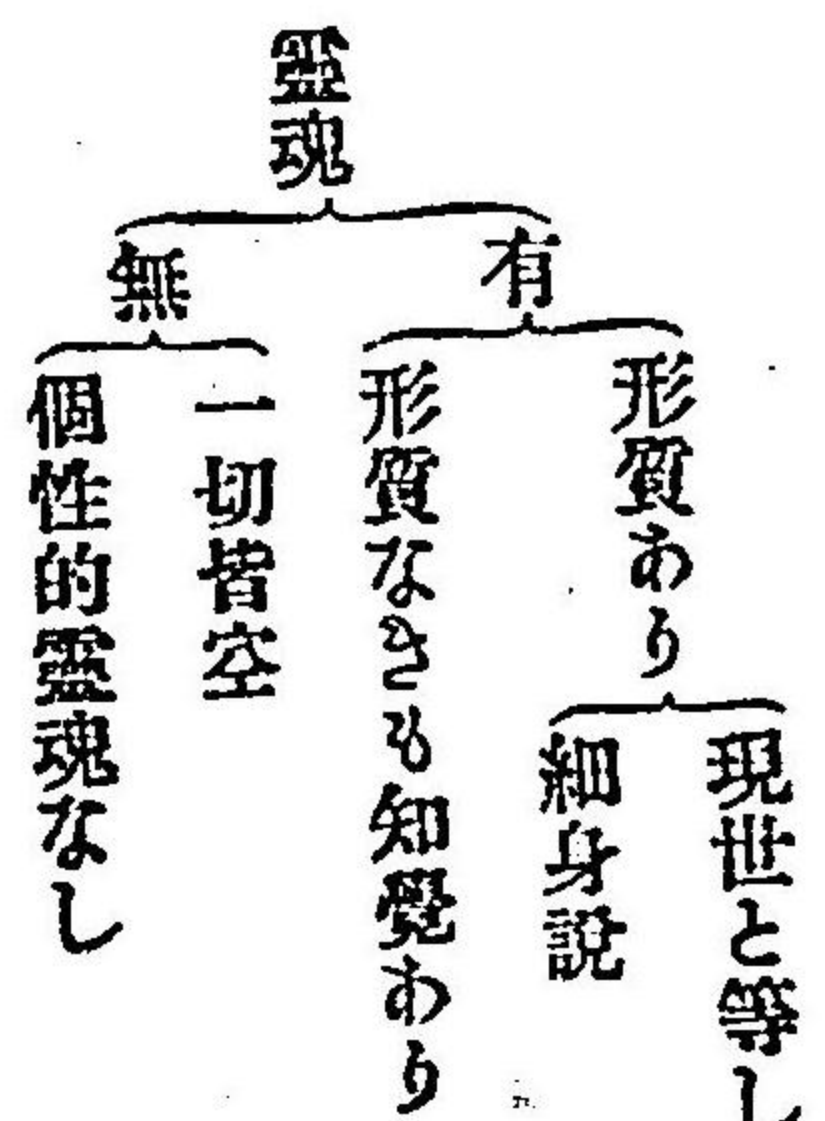 靈魂
有
形質あり
現世と等し
細身説
形質なきも知覺あり
無
一切皆空
個性的靈魂なし